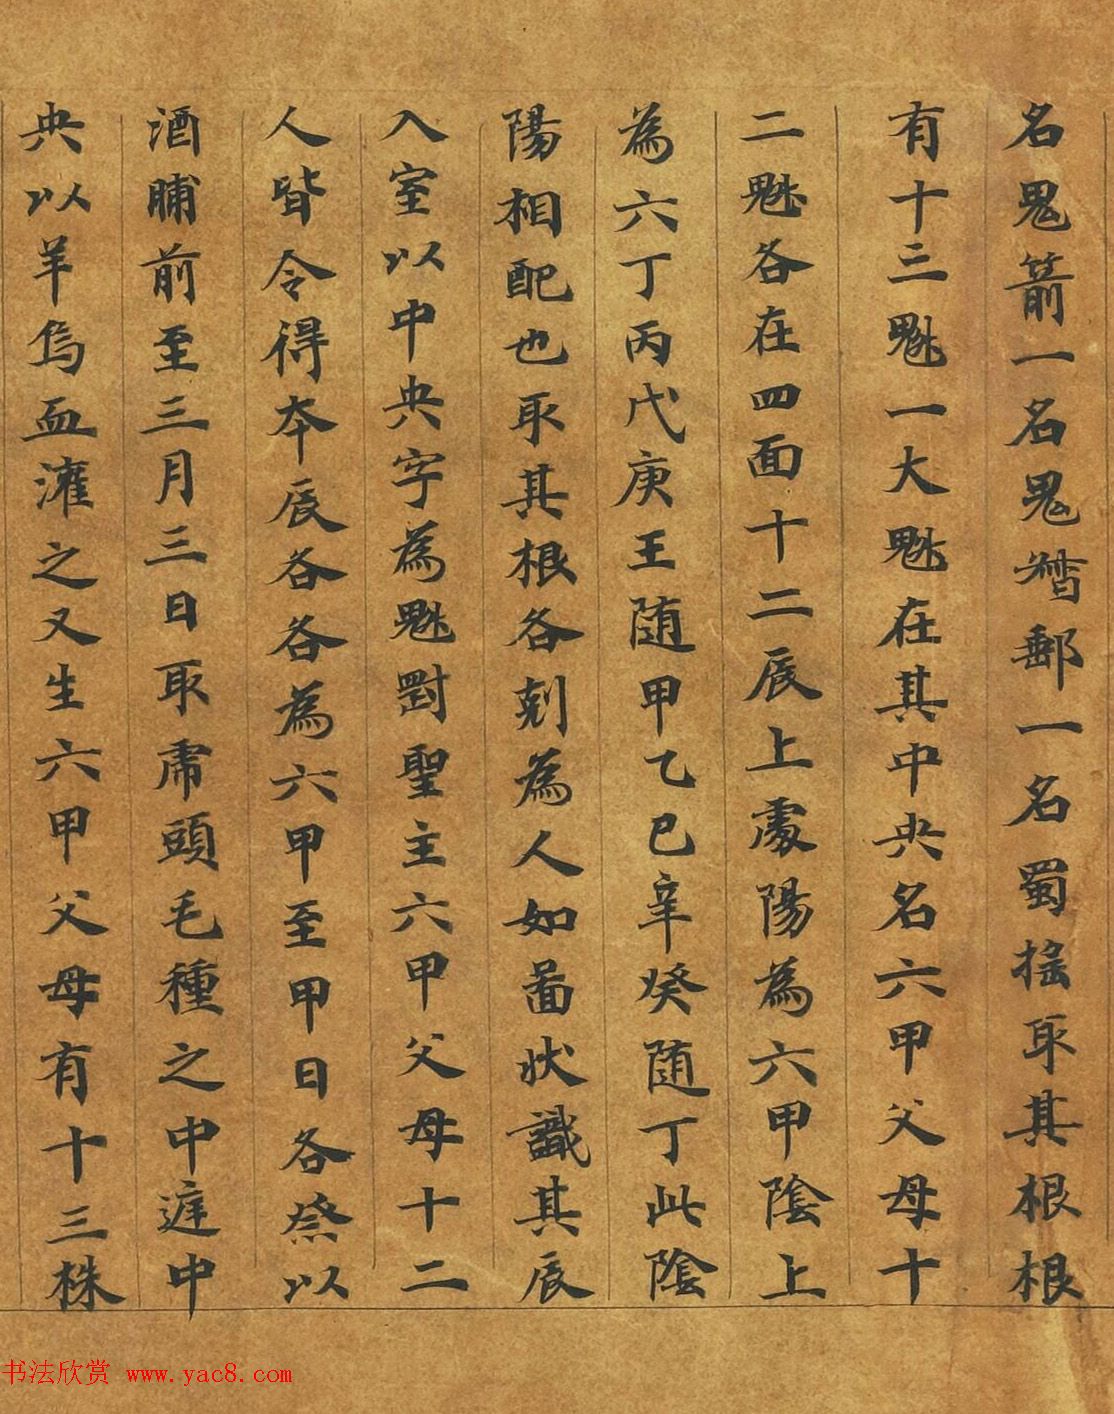 名鬼箭一名鬼督郵一名蜀搖取其根根
有十三魁一大魁在其中央名六甲父母十
二魁各在四面十二辰上處陽為六甲陰上
為六丁丙戊庚壬隨甲乙己辛癸隨丁此陰
陽相配也取其根各剋為人如圖狀識其辰
入室以中央字為魁對聖主六甲父母十二
人皆令得本辰各各為六甲至甲日各祭以
酒脯前至三月三日取虎頭毛種之中庭中
央以羊烏血灌之又生六甲父母有十三株
书法欣赏 www.yac8.com